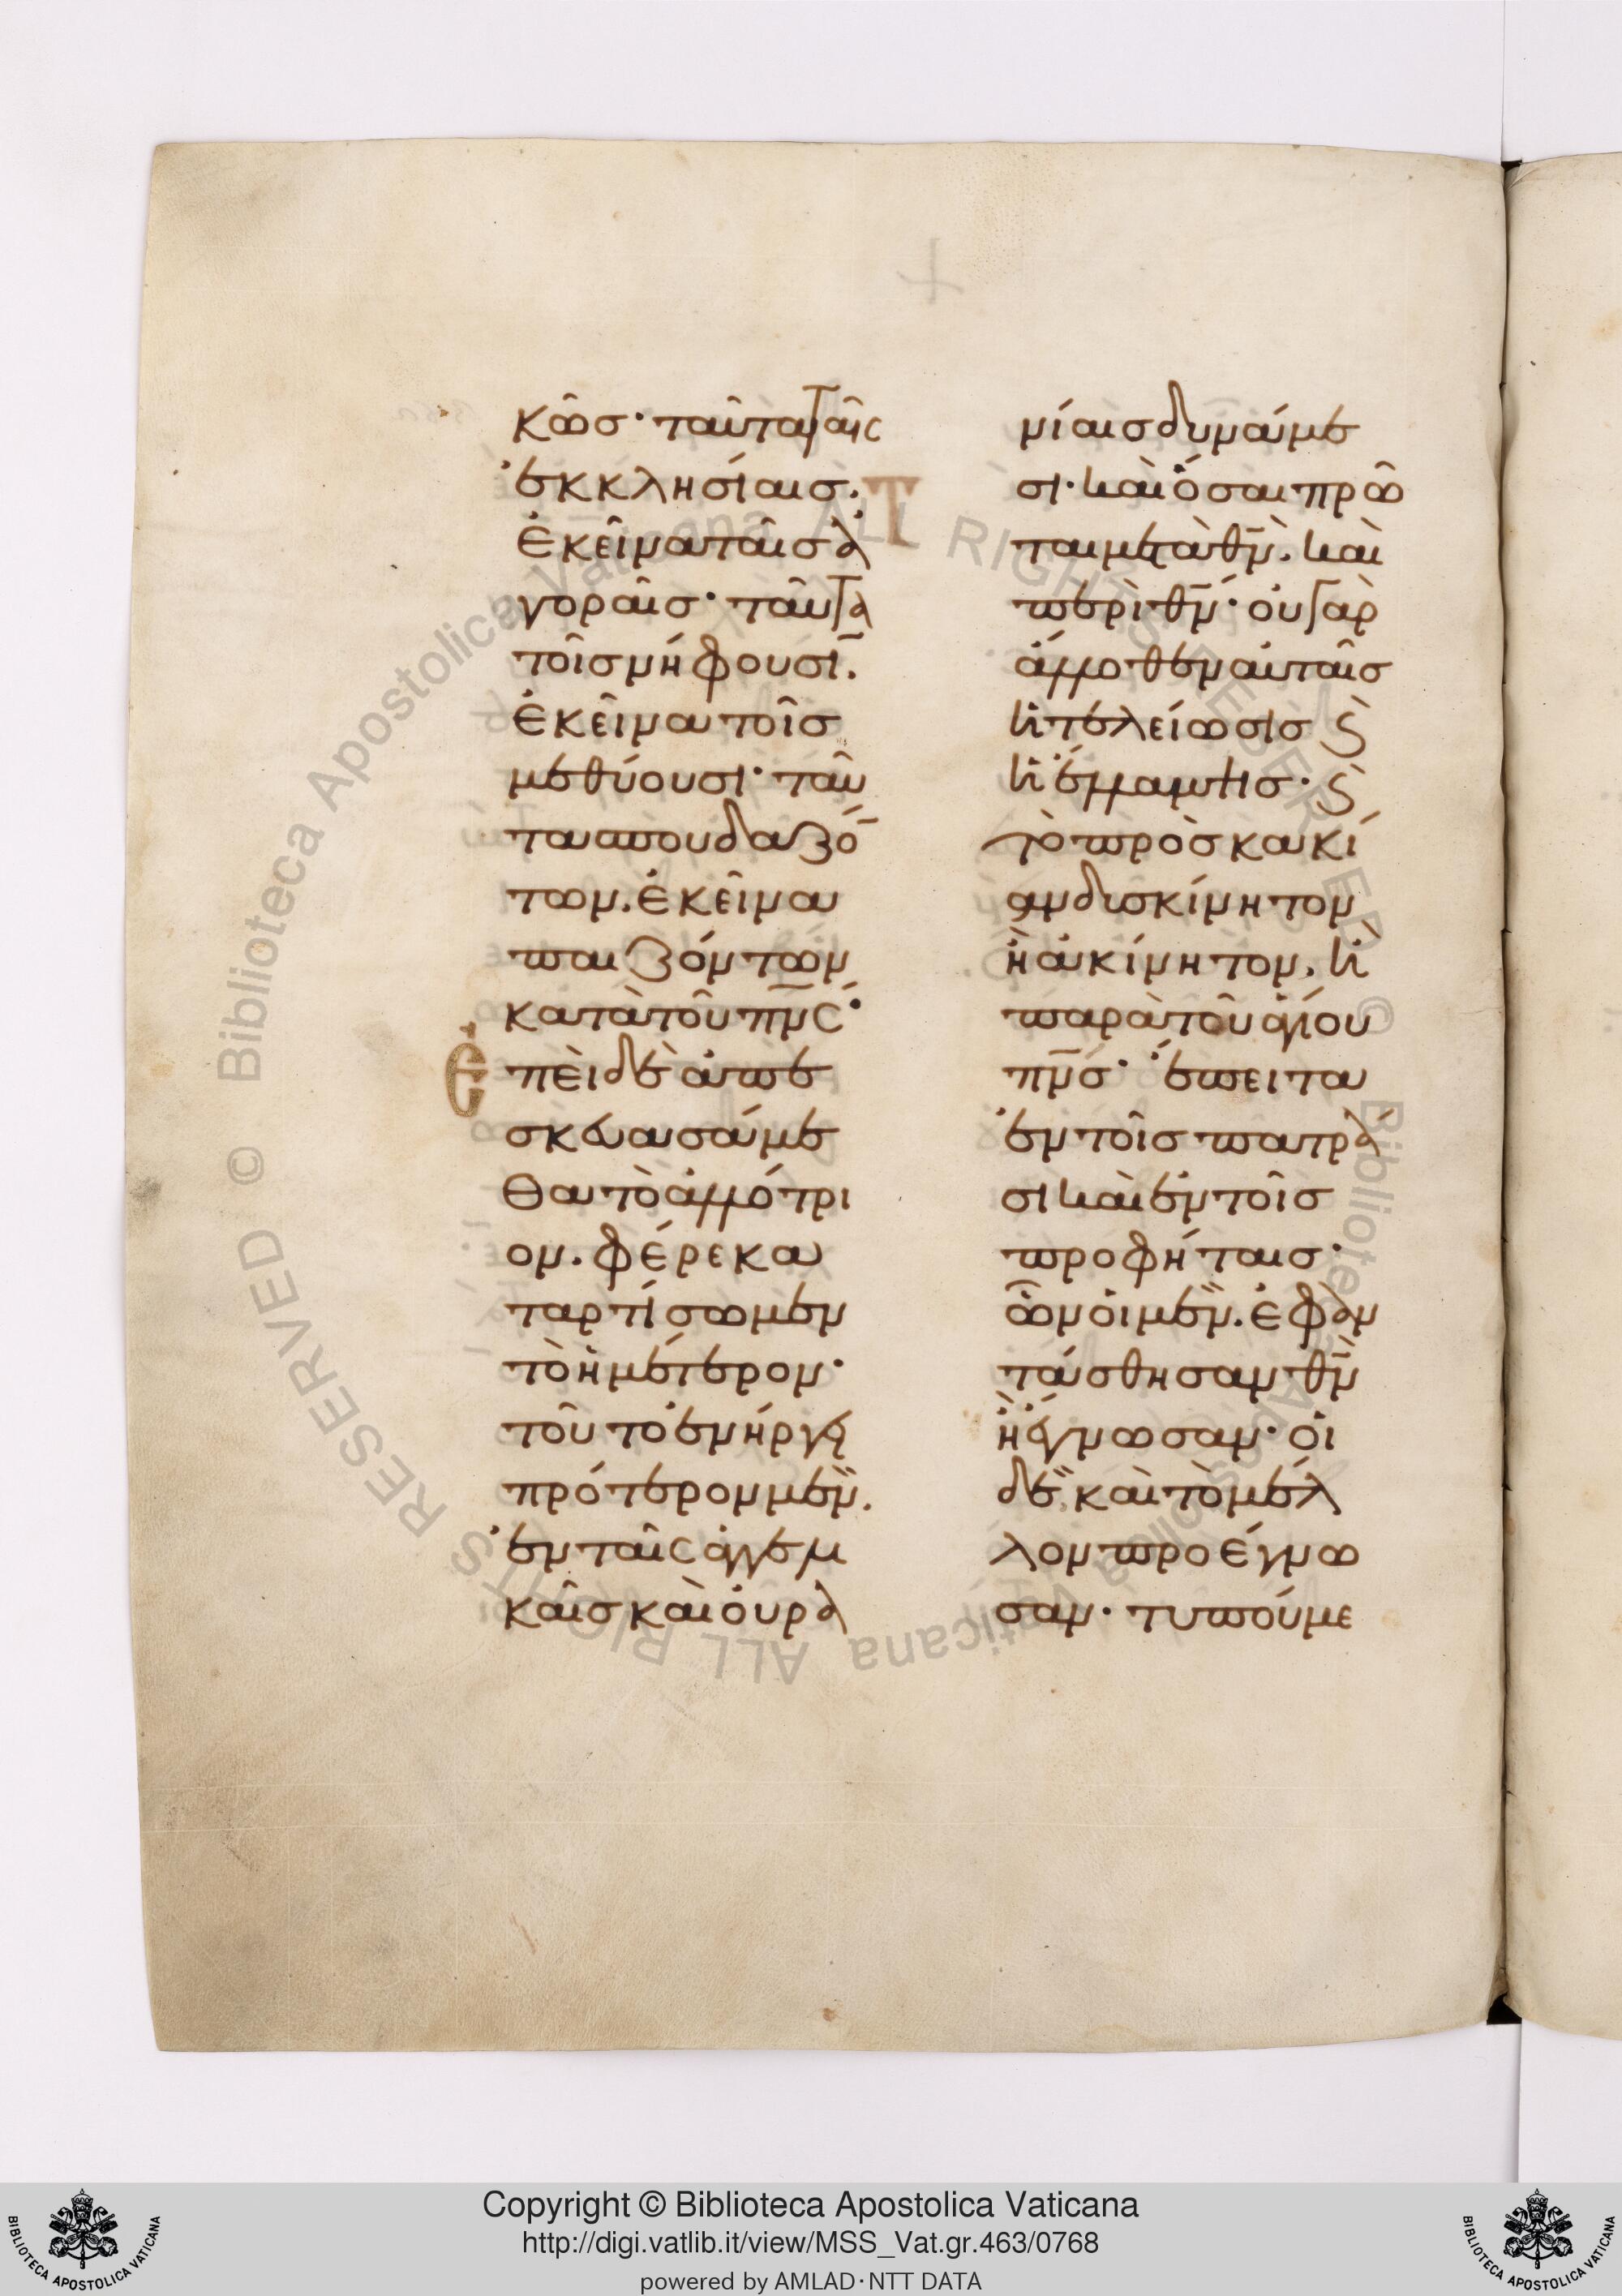 κῶσ· ταῦτα ταῖς
ἐκκλησίαισ.
ἐκεῖνα ταῖσ ἀ
γοραῖσ· ταῦτα
τοῖσ νήφουσῑ.
ἐκεῖνα τοῖσ
μεθύουσι· ταῦ
τα σπουδαζό̄
των. ἐκεῖνα
παιζόντων
κατὰ τοῦ πν̅ς·
Ἐπειδὲ ἀπε
σκευασάμε
θα τὸ ἀλλότρι
ον. φέρε κα
ταρτίσωμεν
τὸ ἡμέτερον·
τοῦτο ἐνήργει
πρότερον μὲν.
ἐν ταῖς ἀγγελι
καῖσ καὶ οὐρα
νίαισ δυνάμε
σι· καὶ ὅσαι πρῶ
ται μετὰ θν̅. καὶ
περὶ θν̅· οὐ γὰρ
ἄλλοθεν αὐταῖσ
ἡ τελείωσισ κ(αὶ)
ἡ ἔλλαμψισ· κ(αὶ)
τὸ πρὸσ κακί
αν δυσκίνητον
ἢ ἀκίνητον. ἢ
παρὰ τοῦ ἁγίου
πν̅σ· ἔπειτα
ἐν τοῖσ πατρά
σι καὶ ἐν τοῖσ
προφήταισ·
ὧν οἱ μὲν. ἐφαν
τάσθησαν θν̅
ἢ ἔγνωσαν· οἱ
δὲ καὶ τὸ μέλ
λον προέγνω
σαν· τυπούμε
Copyright © Biblioteca Apostolica Vaticana
http://digi.vatlib.it/view/MSS_Vat.gr.463/0768
powered by AMLAD·NTT DATA
BIBLIOTECA APOSTOLICA VATICANA
BIBLIOTECA APOSTOLICA VATICANA